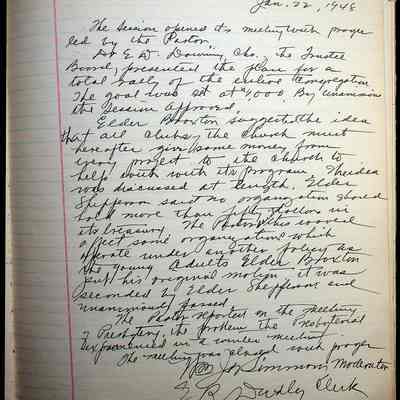 Jan. 22, 1948
The Session opened its meeting with prayer
led by the Pastor.
Dr E. W. Downing Chr. the Trustee
Board, presented the plan for a
total rally of the entire Congregation
The goal was set at $4,000. By unanimous
the Session approved.
Elder Broxton suggest the idea
that all clubs, the church must
hereafter give some money from
every project to the church to
help with its program. The idea
was discussed at length. Elder
Shepperson said no organization should
have more than fifty dollars in
its treasury. The Pastor this would
affect some organizations which
operate under another policy as
the Young Adults. Elder Broxton
put his original motion it was
seconded by Elder Shepperson and
unanimously passed.
The Pastor reported on the meeting
of Presbytery, the problem the Presbyterial
experienced in a winter meeting.
The meeting was closed with prayer
Simmons, Moderator
Clerk